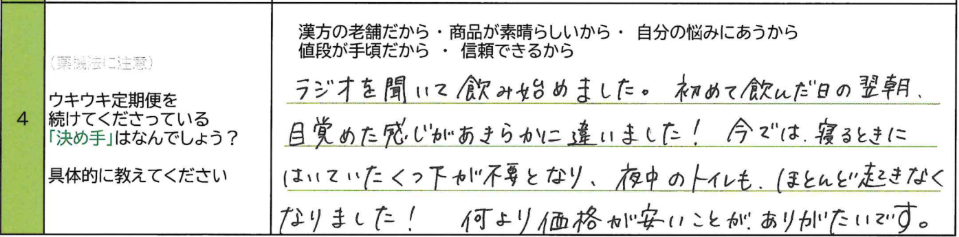 漢方の老舗だから・商品が素晴らしいから・ 自分の悩みにあうから
値段が手頃だから ・ 信頼できるから
(薬機法に注意)
4
ウキウキ定期便を
続けてくださっている
「決め手」はなんでしょう？
具体的に教えてください
ラジオを聞いて飲み始めました。 初めて飲んだ日の翌朝、
目覚めた感じがあきらかに違いました! 今では、寝るときに
はいていたくつ下が不要となり、夜中のトイレも、ほとんど起きなく
なりました! 何より価格が安いことが、ありがたいです。